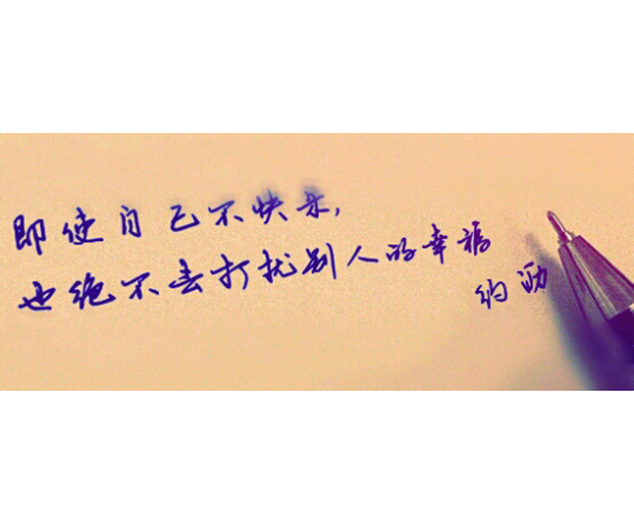 即使自己不快乐,
也绝不去打扰别人的幸福
约励